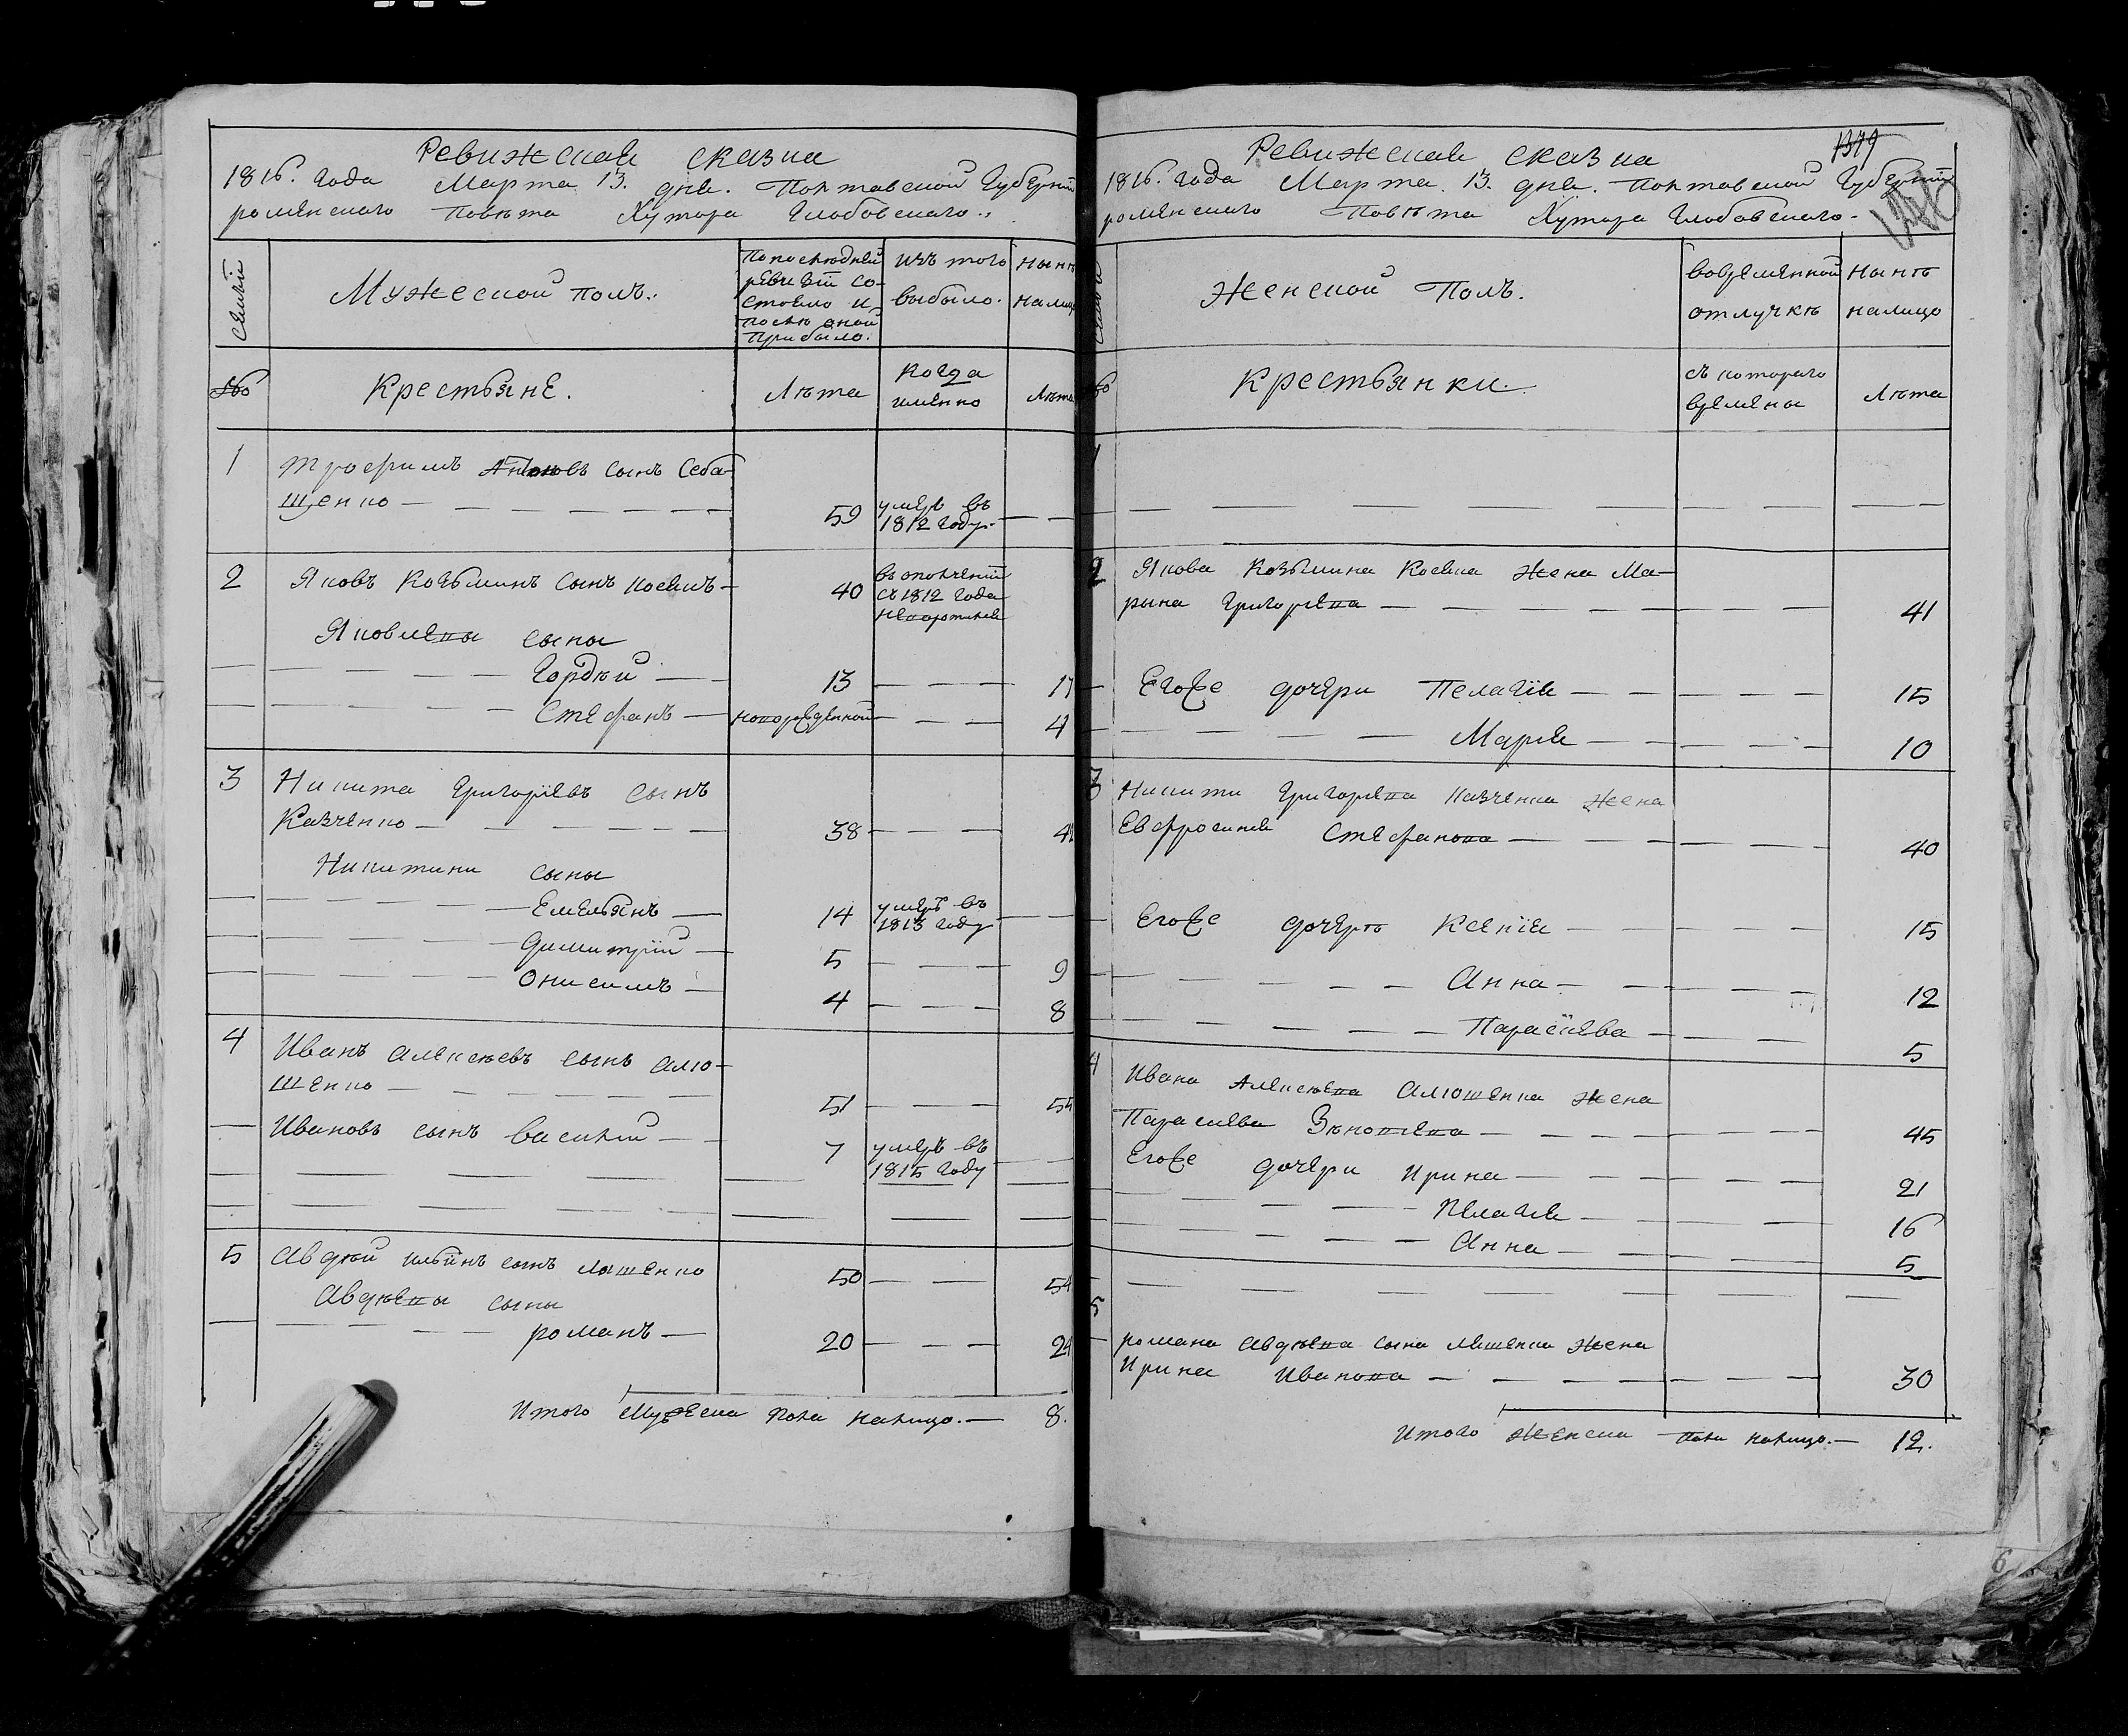 Ревижская сказка
1816. года Марта 13. дня. Полтавской Губернїи
роменского Повѣта Хутора Глобовского.
Семьи
Мужеской полъ.
По последней
ревизїи со-
стояло и
послѣ оной
прибыло.
изъ того
выбыло.
Нынѣ
налицо
№
Крестьяне.
Лѣта
Когда
именно
Лѣта
1 Трофимъ Антоновъ сынъ Себа-
щенко 59 умеръ въ
1812 году.
2 Яковъ Козьминъ сынъ 40 въ ополченїи
съ 1812 года
Яковлевы сыны
Гордѣй 13 17
Стефанъ новорожденной 4
3 Никита Григорїевъ сынъ
Казченко 38 42
Никитини сыны
Емельянъ 14 умеръ въ
1813 году
Димитрїй 5 9
Онисимъ 4 8
4 Иванъ Алексѣевъ сынъ Алю-
шенко 51 55
Ивановъ сынъ Василїй 7 умеръ въ
1815 году
5 Авдѣй Ильїнъ сынъ Ляшенко 50 54
Авдѣевы сыны
романъ 20 24
Итого мужеска пола налицо. 8.
1379
Ревижская сказка
1816. года Марта 13. дня. Полтавской Губернїи
роменского Повѣта Хутора Глобовского.
Женской Полъ.
Во временной
отлучкѣ
Нынѣ
налицо
№
Крестьянки.
съ которого
времены
Лѣта
1
2 Якова Козьмина жена Ма-
рына Григорїева 41
Егоже дочери Пелагїя 15
Марїя 10
3 Никити Григорїева Казченка жена
Евфросинїя Стефанова 40
Егоже дочерѣ Ксенїя 15
Анна 12
Параскева 5
4 Ивана Алексѣева Алюшенка жена
Параскева 45
Егоже дочери Ирина 21
Пелагїя 16
Анна 5
5
романа Авдѣева сына Ляшенка жена
Ирина Иванова 30
Итого женска пола налицо. 12.
6